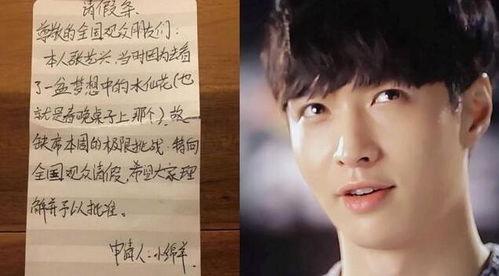 请假条
尊敬的全国观众朋友们：
本人张艺兴，当时因为去看
了一盆梦想中的水仙花（也
就是春晚桌子上那个）故
缺席本周的极限挑战，特向
全国观众请假，希望大家理
解并予以批准。
申请人：小绵羊